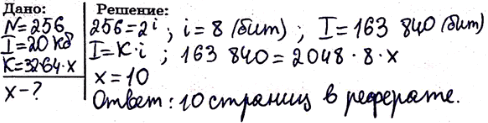 Дано:
N=256
I=20 Кб
K=32·64·x
x-?
Решение:
256=2i; i=8 (бит); I=163 840 (бит)
I=K·i; 163 840=2048·8·x
x=10
Ответ: 10 страниц в реферате.